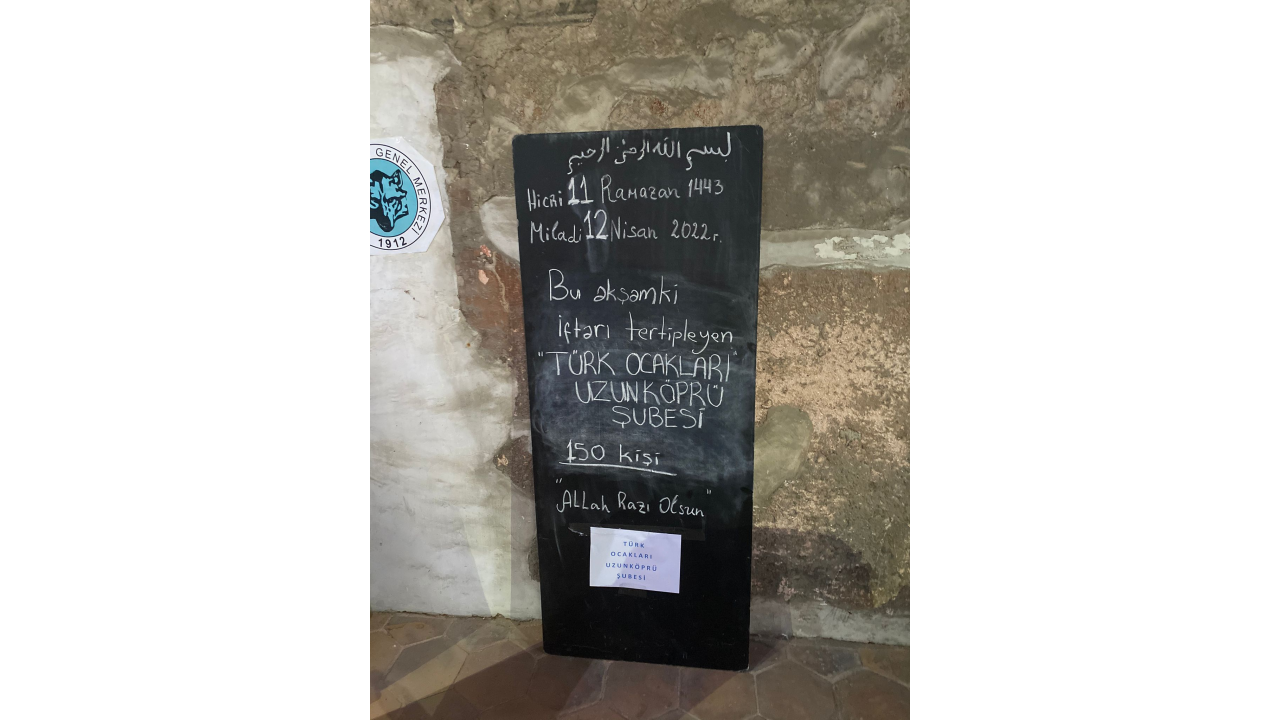 GENEL MERKEZİ
1912
بسم الله الرحمن الرحيم
Hicri 11 Ramazan 1443
Miladi 12 Nisan 2022г.
Bu əkşəmki
İftarı tertipleyen
"TÜRK OCAKLARI"
UZUNKÖPRÜ
ŞUBESİ
150 kişi
"ALLah Razı Olsun"
TÜRK
OCAKLARI
UZUNKÖPRÜ
ŞUBESİ